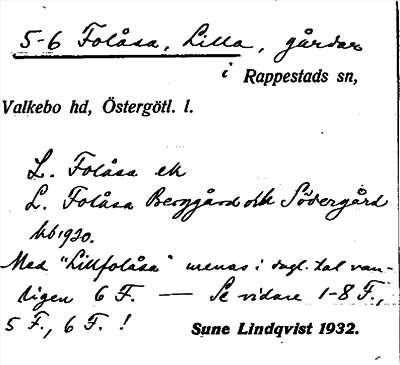 5-6 Folåsa, Lilla, gårdar
i Rappestads sn,
Valkebo hd, Östergötl. l.
L. Folåsa ek
L. Folåsa Berggård och Södergård
kb 1920.
Med "Lillfolåsa" menas i dagl. tal van-
ligen 6 F. — Se vidare 1-8 F.,
5 F., 6 F. !
Sune Lindqvist 1932.